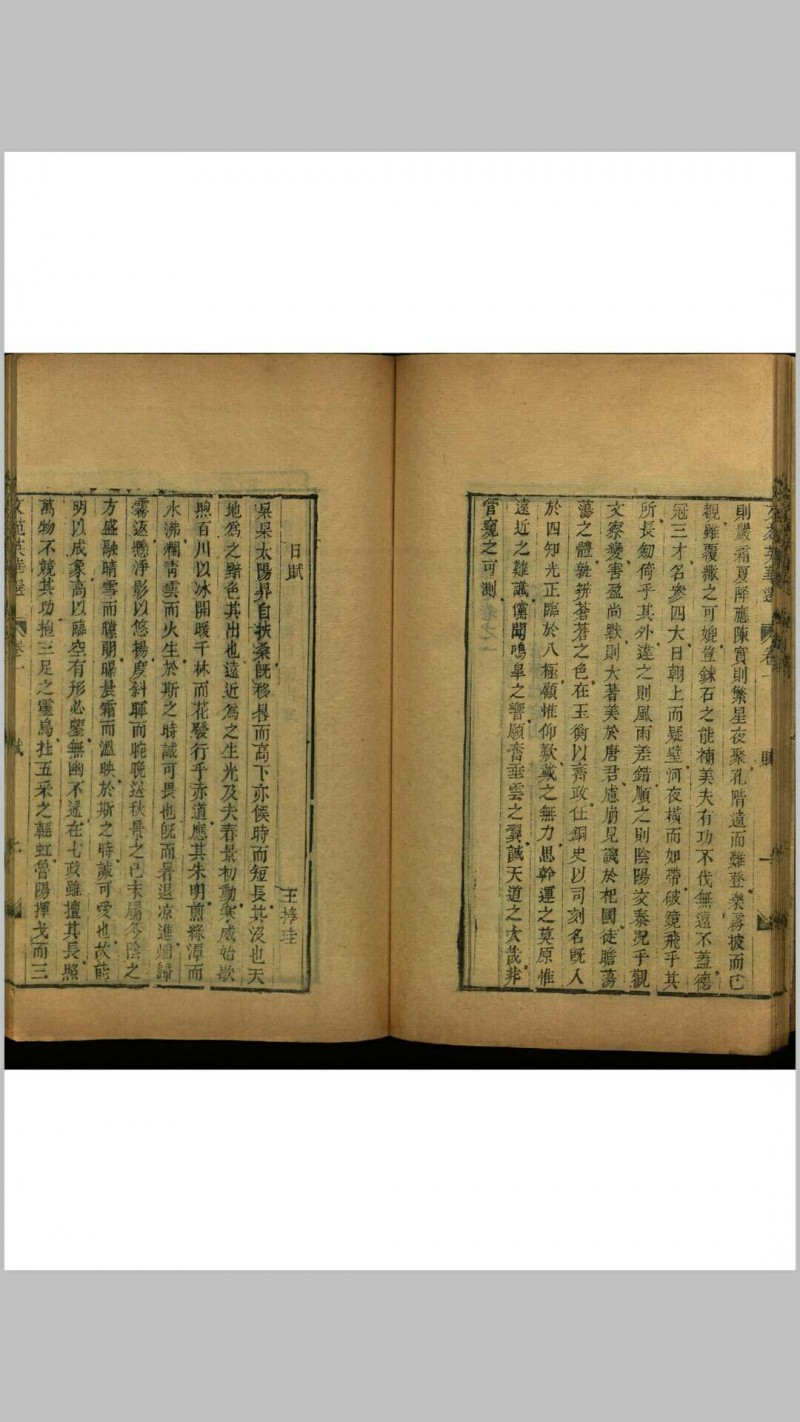 則嚴霜夏降應陳寶則繁星夜聚孔階遠而難登樂霧披而已
觀雖覆幬之可媲豈鍊石之能補美夫有功不伐無遠不蓋德
冠三才名參四大日朝上而疑璧河夜橫而如帶破鏡飛乎其
所長劒倚乎其外違之則風雨差錯順之則陰陽交泰況乎觀
文察變害盈尚默則大著美於唐君慮崩見譏於杞國徒瞻蕩
蕩之體孰辨蒼蒼之色在玉衡以齊政仕銅史以司刻名旣入
於四知光正臨於八極顧惟仰歎戴之無力思幹運之莫原惟
遠近之難識儻聞鳴皐之響願奮垂雲之翼誠天道之大哉非
管窺之可測
文苑英華選 卷一 賦
日賦 王捧珪
杲杲太陽昇自扶桑旣移晷而高下亦候時而短長其沒也天
地爲之黯色其出也遠近爲之生光及夫春景初動寒威始歇
煦百川以冰開暖千林而花發行乎赤道應其朱明煎綠潭而
水沸爛靑雲而火生於斯之時誠可畏也旣而暑退凉進烟歸
霧返懸淨影以悠揚度斜暉而晼晩送秋景之已末屬冬陰之
方盛融晴雪而曈朧曝晨霜而溫映於斯之時誠可愛也故能
明以成象高以臨空有形必鑒無幽不通在七政雖擅其長照
萬物不競其功抱三足之靈烏拄五采之輕虹魯陽揮戈而三
文苑英華選 卷一 賦